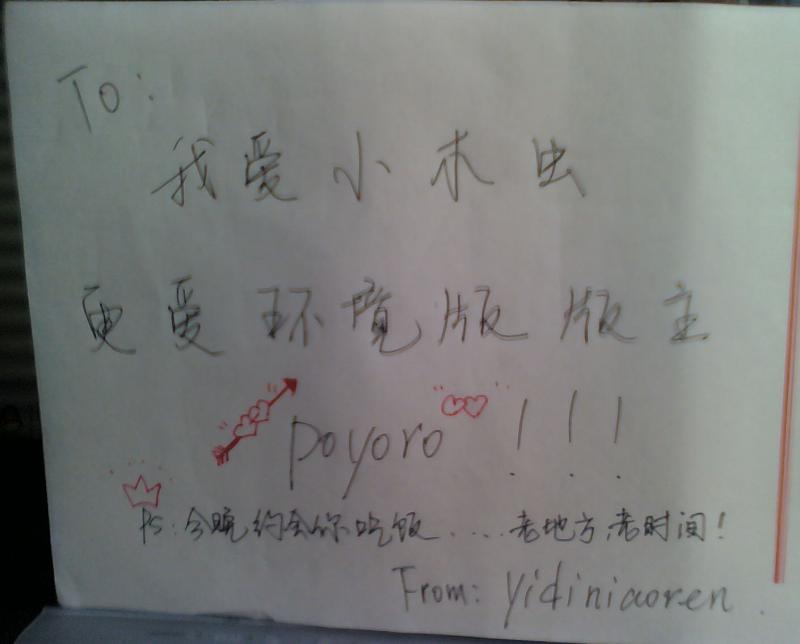 To:
我爱小木虫
更爱环境版版主
poyoro！！！
Ps:今晚约会你吃饭....老地方,老时间！
From: yidiniaoren